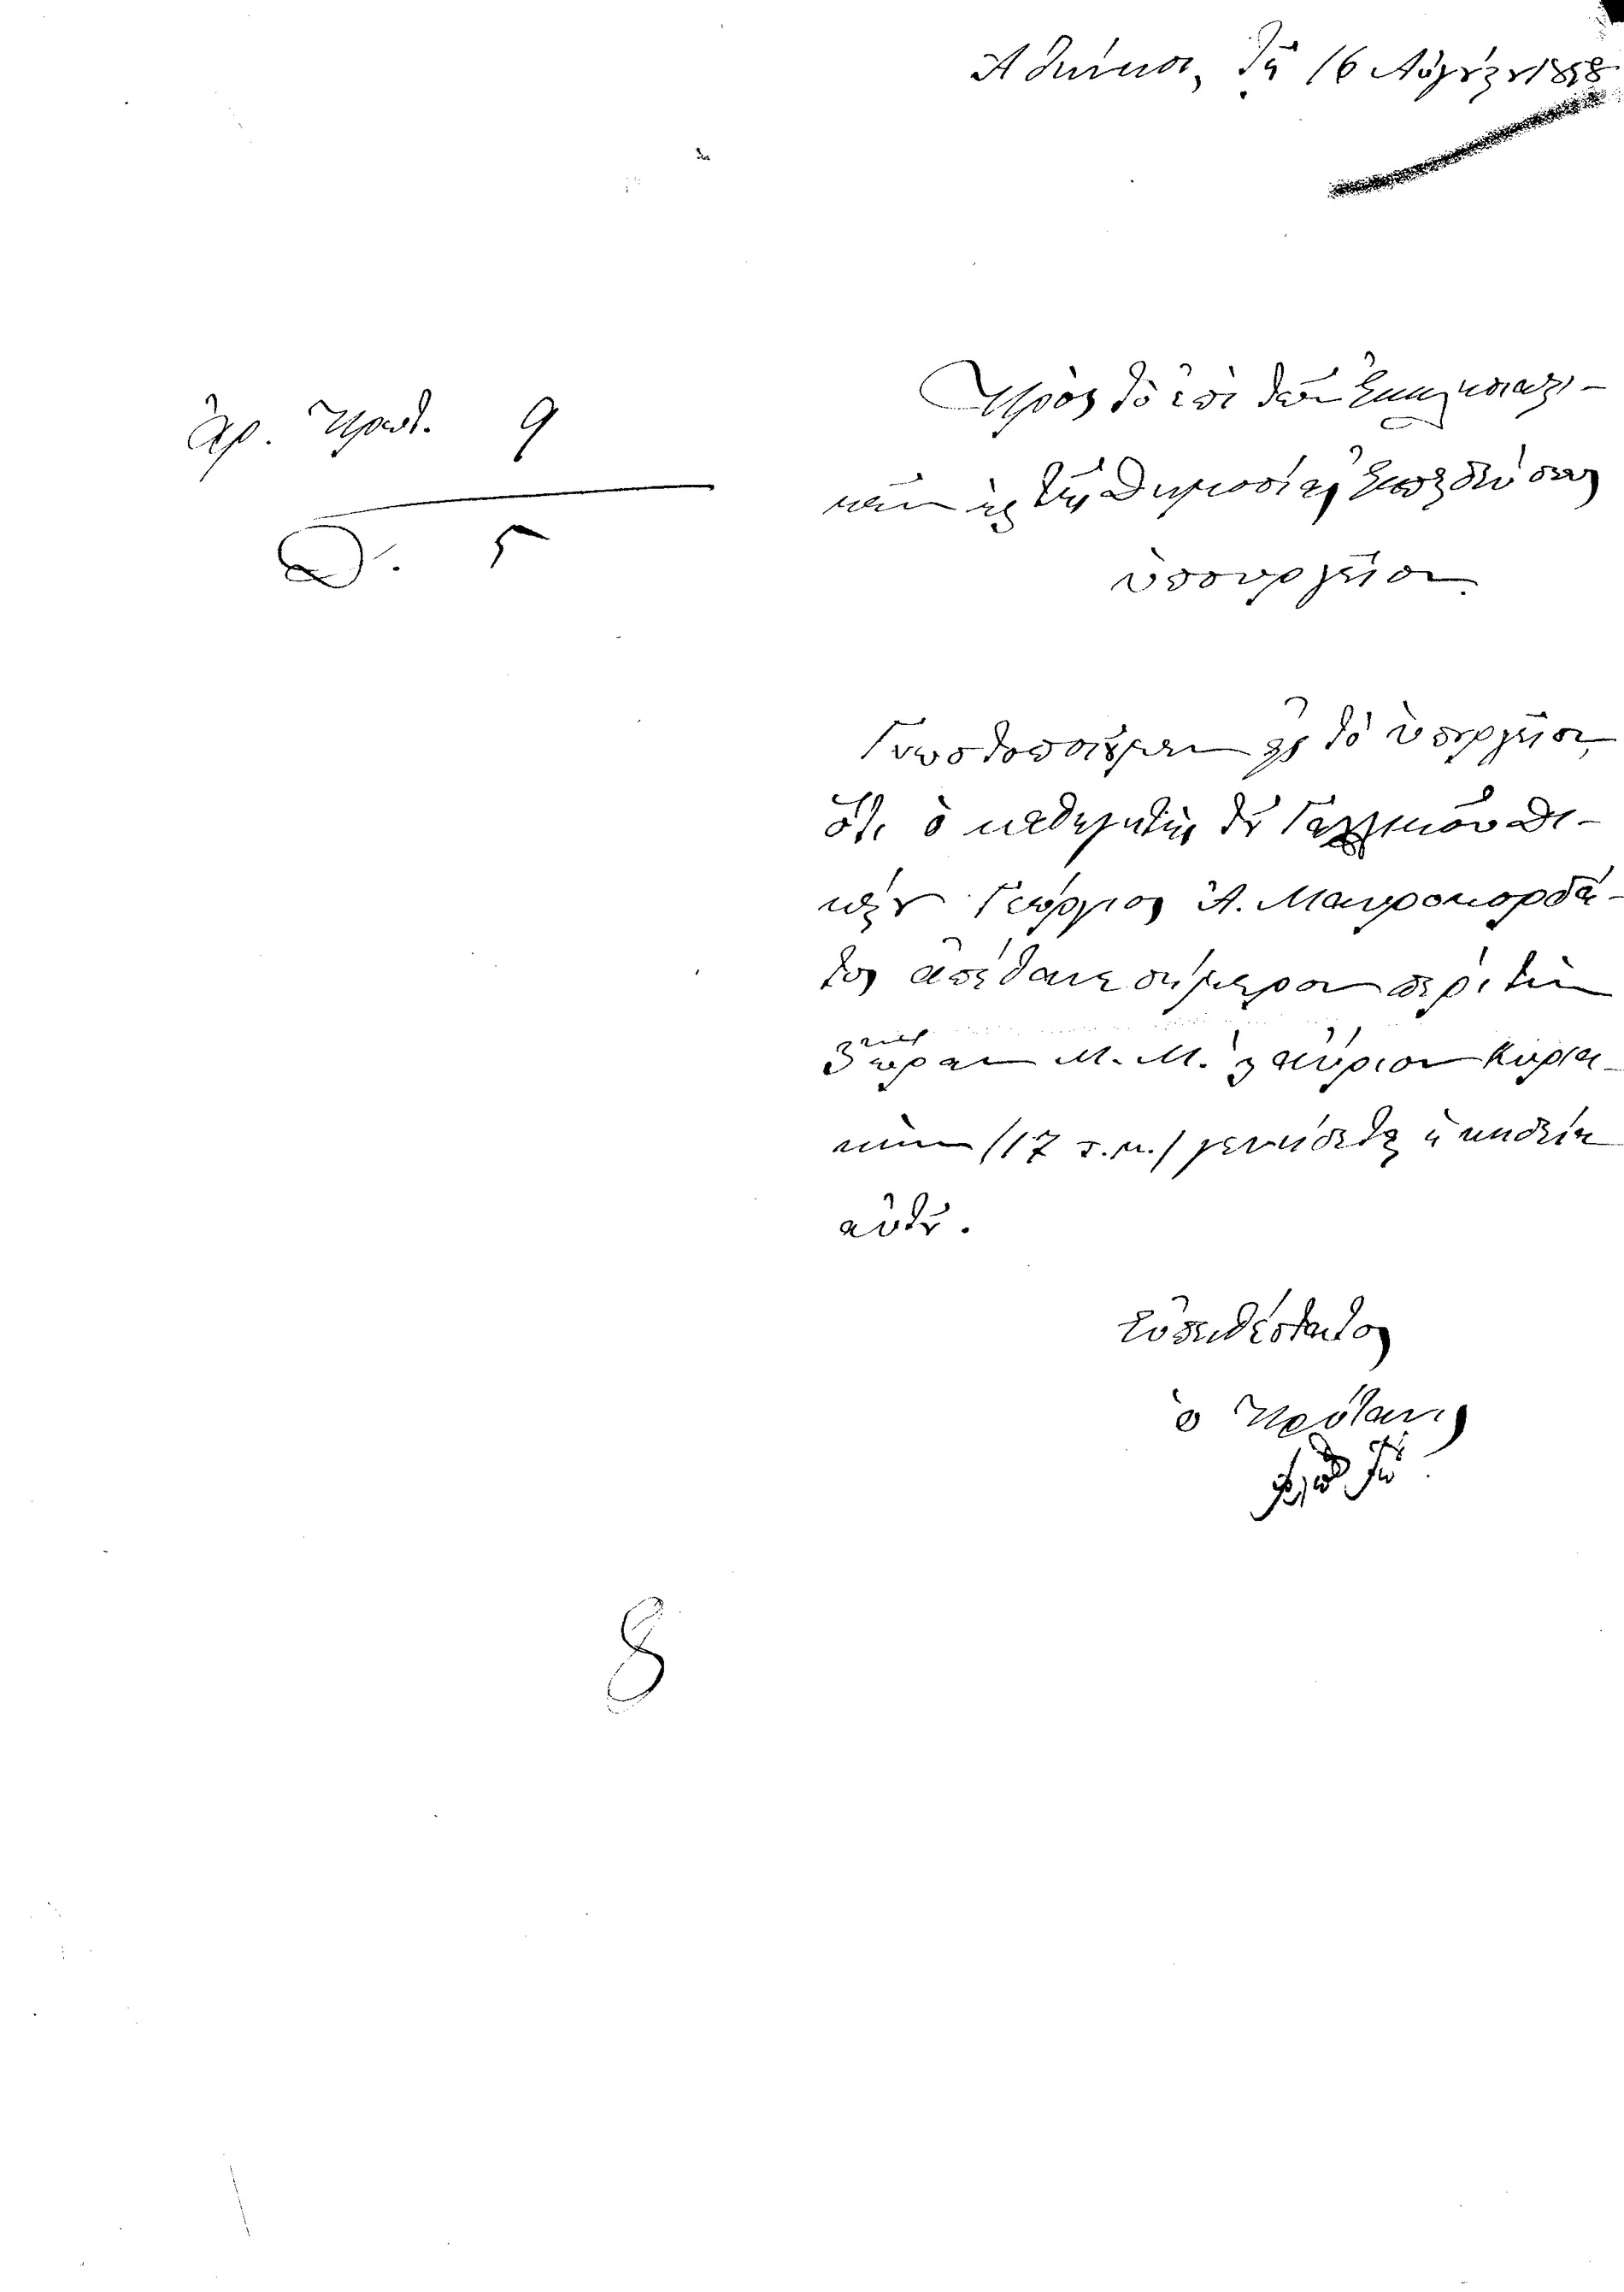 Ἀθήνησι, τῇ 16 Αὐγούστου 1858
ἀρ. Πρωτ. 9
Δ. 5
Πρὸς τὸ ἐπὶ τῶν Ἐκκλησιαστι-
κῶν καὶ τῆς Δημοσίας Ἐκπαιδεύσεως
ὑπουργεῖον.
Γνωστοποιοῦμεν εἰς τὸ ὑπουργεῖον,
ὅτι ὁ καθηγητὴς τοῦ Γαλλικοῦ Δι-
καίου Γεώργιος Ἀ. Μαυροκορδά-
τος ἀπέθανε σήμερον περὶ τὴν
3 ὥραν Μ. Μ. καὶ αὔριον Κυρια-
κὴν (17 τ. μ.) γενήσεται ἡ κηδεία
αὐτοῦ.
Εὐπειθέστατος
ὁ Πρύτανις
8